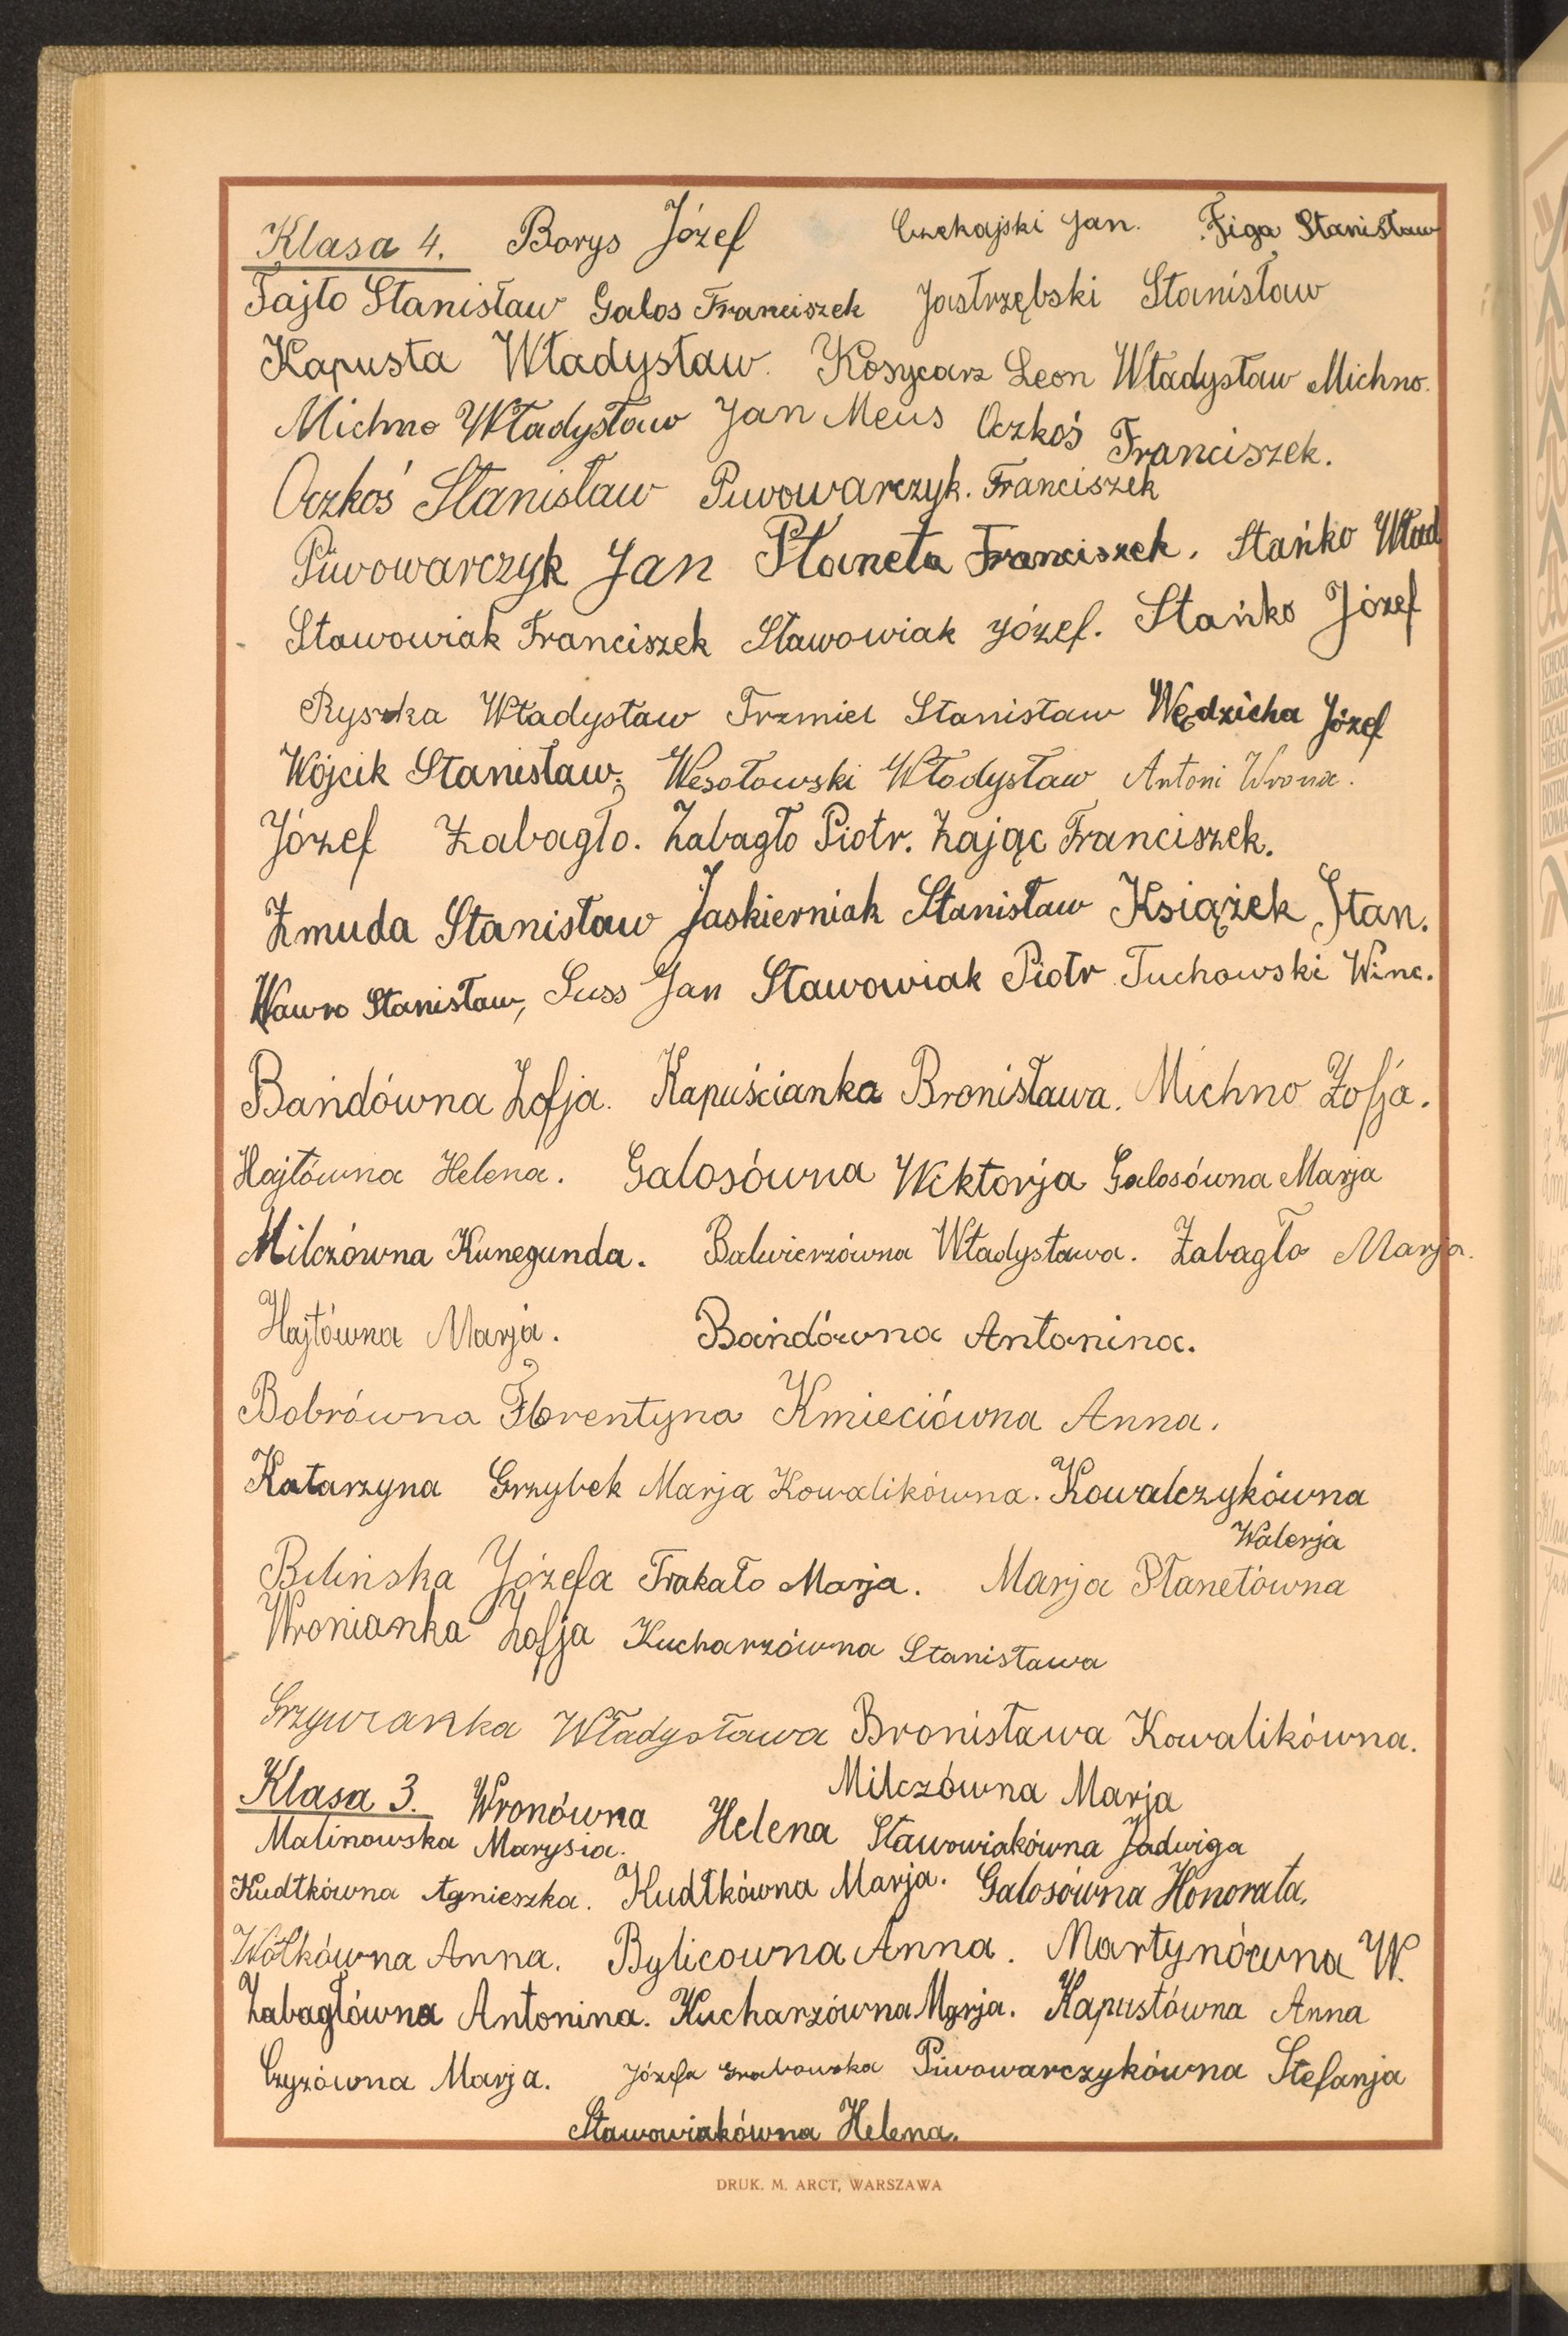 Klasa 4. Borys Józef Czekajski Jan. Figa Stanisław
Fajto Stanisław Galos Franciszek Jastrzębski Stanisław
Kapusta Władysław. Kosycarz Leon Władysław Michno.
Michno Władysław Jan Meus Oczkoś Franciszek.
Oczkoś Stanisław Piwowarczyk. Franciszek
Piwowarczyk Jan Płaneta Franciszek. Stańko Wład
Stawowiak Franciszek Stawowiak Józef. Stańko Józef
Ryszka Władysław Trzmiel Stanisław Wędzicha Józef
Wójcik Stanisław. Wesołowski Włodysław Antoni Wrona.
Józef Żabagło. Żabagło Piotr. Zając Franciszek.
Żmuda Stanisław Jaskierniak Stanisław Książek Stan.
Wawro Stanisław, Suss Jan Stawowiak Piotr Tuchowski Winc.
Bańdówna Zofja. Kapuścianka Bronisława. Michno Zofja.
Hajtówna Helena. Galosówna Wiktorja Galosówna Marja
Milczówna Kunegunda. Balwierzówna Władysława. Żabagło Marja.
Hajtówna Marja. Bańdówna Antonina.
Bobrówna Florentyna Kmieciówna Anna.
Katarzyna Grzybek Marja Kowalikówna. Kowalczykówna
Walerja
Bilinska Józefa Trakało Marja. Marja Płanetówna
Wronianka Zofja Kucharzówna Stanisława
Grzywianka Władysława Bronisława Kowalikówna.
Milczówna Marja
Klasa 3. Wronówna Helena Stawowiakówna Jadwiga
Malinowska Marysia.
Kudłkówna Agnieszka. Kudłkówna Marja. Galosówna Honorata.
Wółkówna Anna. Bylicowna Anna. Martynówna W.
Żabagłówna Antonina. Kucharzówna Marja. Kapustówna Anna
Czyżówna Marja. Józefa Grabowska Piwowarczykówna Stefanja
Stawowiakówna Helena.
DRUK. M. ARCT, WARSZAWA